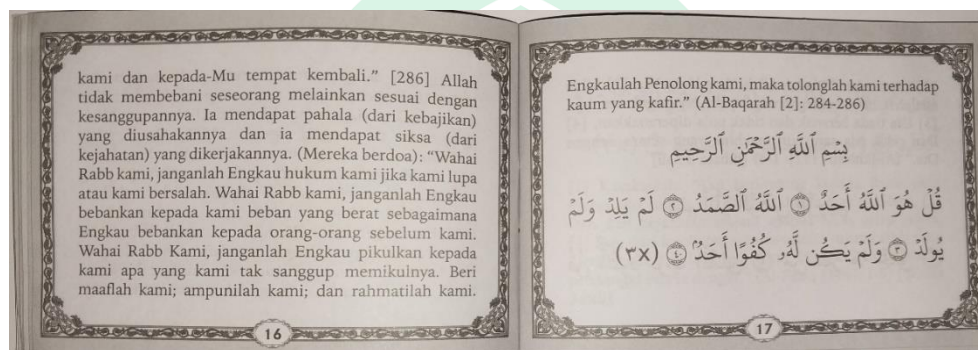 kami dan kepada-Mu tempat kembali.” [286] Allah
tidak membebani seseorang melainkan sesuai dengan
kesanggupannya. Ia mendapat pahala (dari kebajikan)
yang diusahakannya dan ia mendapat siksa (dari
kejahatan) yang dikerjakannya. (Mereka berdoa): “Wahai
Rabb kami, janganlah Engkau hukum kami jika kami lupa
atau kami bersalah. Wahai Rabb kami, janganlah Engkau
bebankan kepada kami beban yang berat sebagaimana
Engkau bebankan kepada orang-orang sebelum kami.
Wahai Rabb Kami, janganlah Engkau pikulkan kepada
kami apa yang kami tak sanggup memikulnya. Beri
maaflah kami; ampunilah kami; dan rahmatilah kami.
16
Engkaulah Penolong kami, maka tolonglah kami terhadap
kaum yang kafir.” (Al-Baqarah [2]: 284-286)
بِسْمِ ٱللَّهِ ٱلرَّحْمَٰنِ ٱلرَّحِيمِ
قُلْ هُوَ ٱللَّهُ أَحَدٌ ۝١ ٱللَّهُ ٱلصَّمَدُ ۝٢ لَمْ يَلِدْ وَلَمْ
يُولَدْ ۝٣ وَلَمْ يَكُن لَّهُۥ كُفُوًا أَحَدٌۢ ۝٤ (٣x)
17